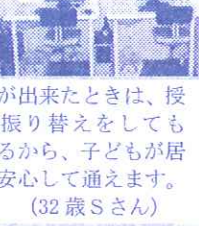 が出来たときは、授
振り替えをしても
るから、子どもが居
安心して通えます。
(32歳Sさん)